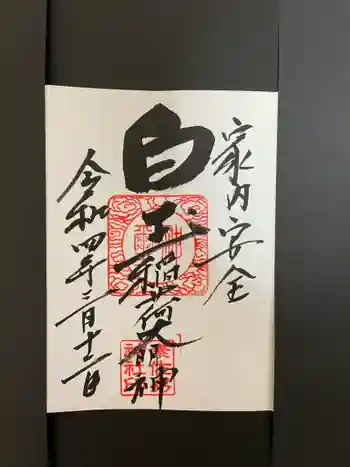 家内安全
白玉稲荷大明神
令和四年二月十二日